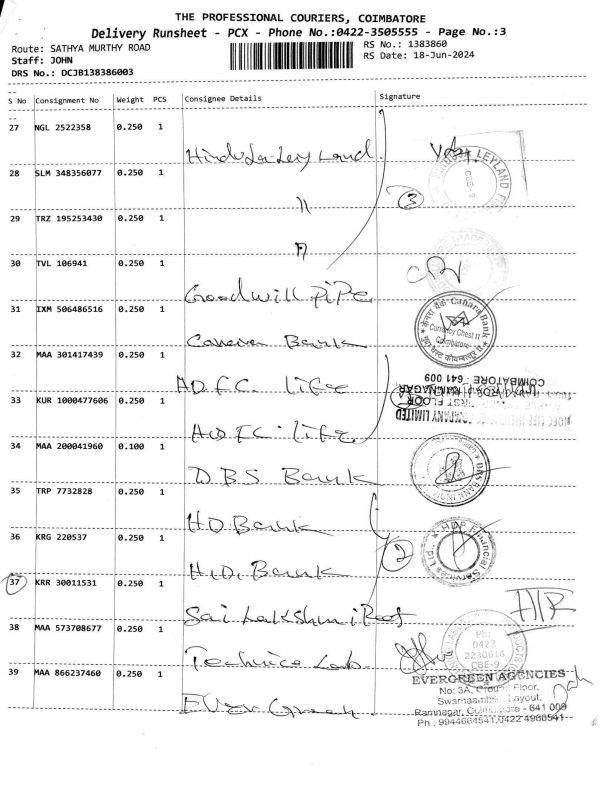 THE PROFESSIONAL COURIERS, COIMBATORE
Delivery Runsheet - PCX - Phone No.:0422-3505555 - Page No.:3
Route: SATHYA MURTHY ROAD
RS No.: 1383860
Staff: JOHN
RS Date: 18-Jun-2024
DRS No.: DCJB138386003
S No Consignment No Weight PCS Consignee Details Signature
27 NGL 2522358 0.250 1
Hinduja Leyland
28 SLM 348356077 0.250 1
"
3
29 TRZ 195253430 0.250 1
"
30 TVL 106941 0.250 1
Goodwill Pipe
31 IXM 506486516 0.250 1
Canara Bank
केनरा बैंक Canara Bank
Currency Chest II
Coimbatore
32 MAA 301417439 0.250 1
H.D.F.C. life
COIMBATORE - 641 009
33 KUR 1000477606 0.250 1
HDFC life
34 MAA 200041960 0.100 1
DBS Bank
DBS BANK INDIA
35 TRP 7732828 0.250 1
HD Bank
36 KRG 220537 0.250 1
H.D. Bank
2
HDB Financial Services Ltd.
37 KRR 30011531 0.250 1
Sai Lakshmi
38 MAA 573708677 0.250 1
Technico Lab
Ph:
0422
2230616
CBE-9
39 MAA 866237460 0.250 1
Ever Green
EVERGREEN AGENCIES
No: 3A, Ground Floor,
Swarnaambika Layout,
Ramnagar, Coimbatore - 641 009
Ph : 9944664541,0422 4986541